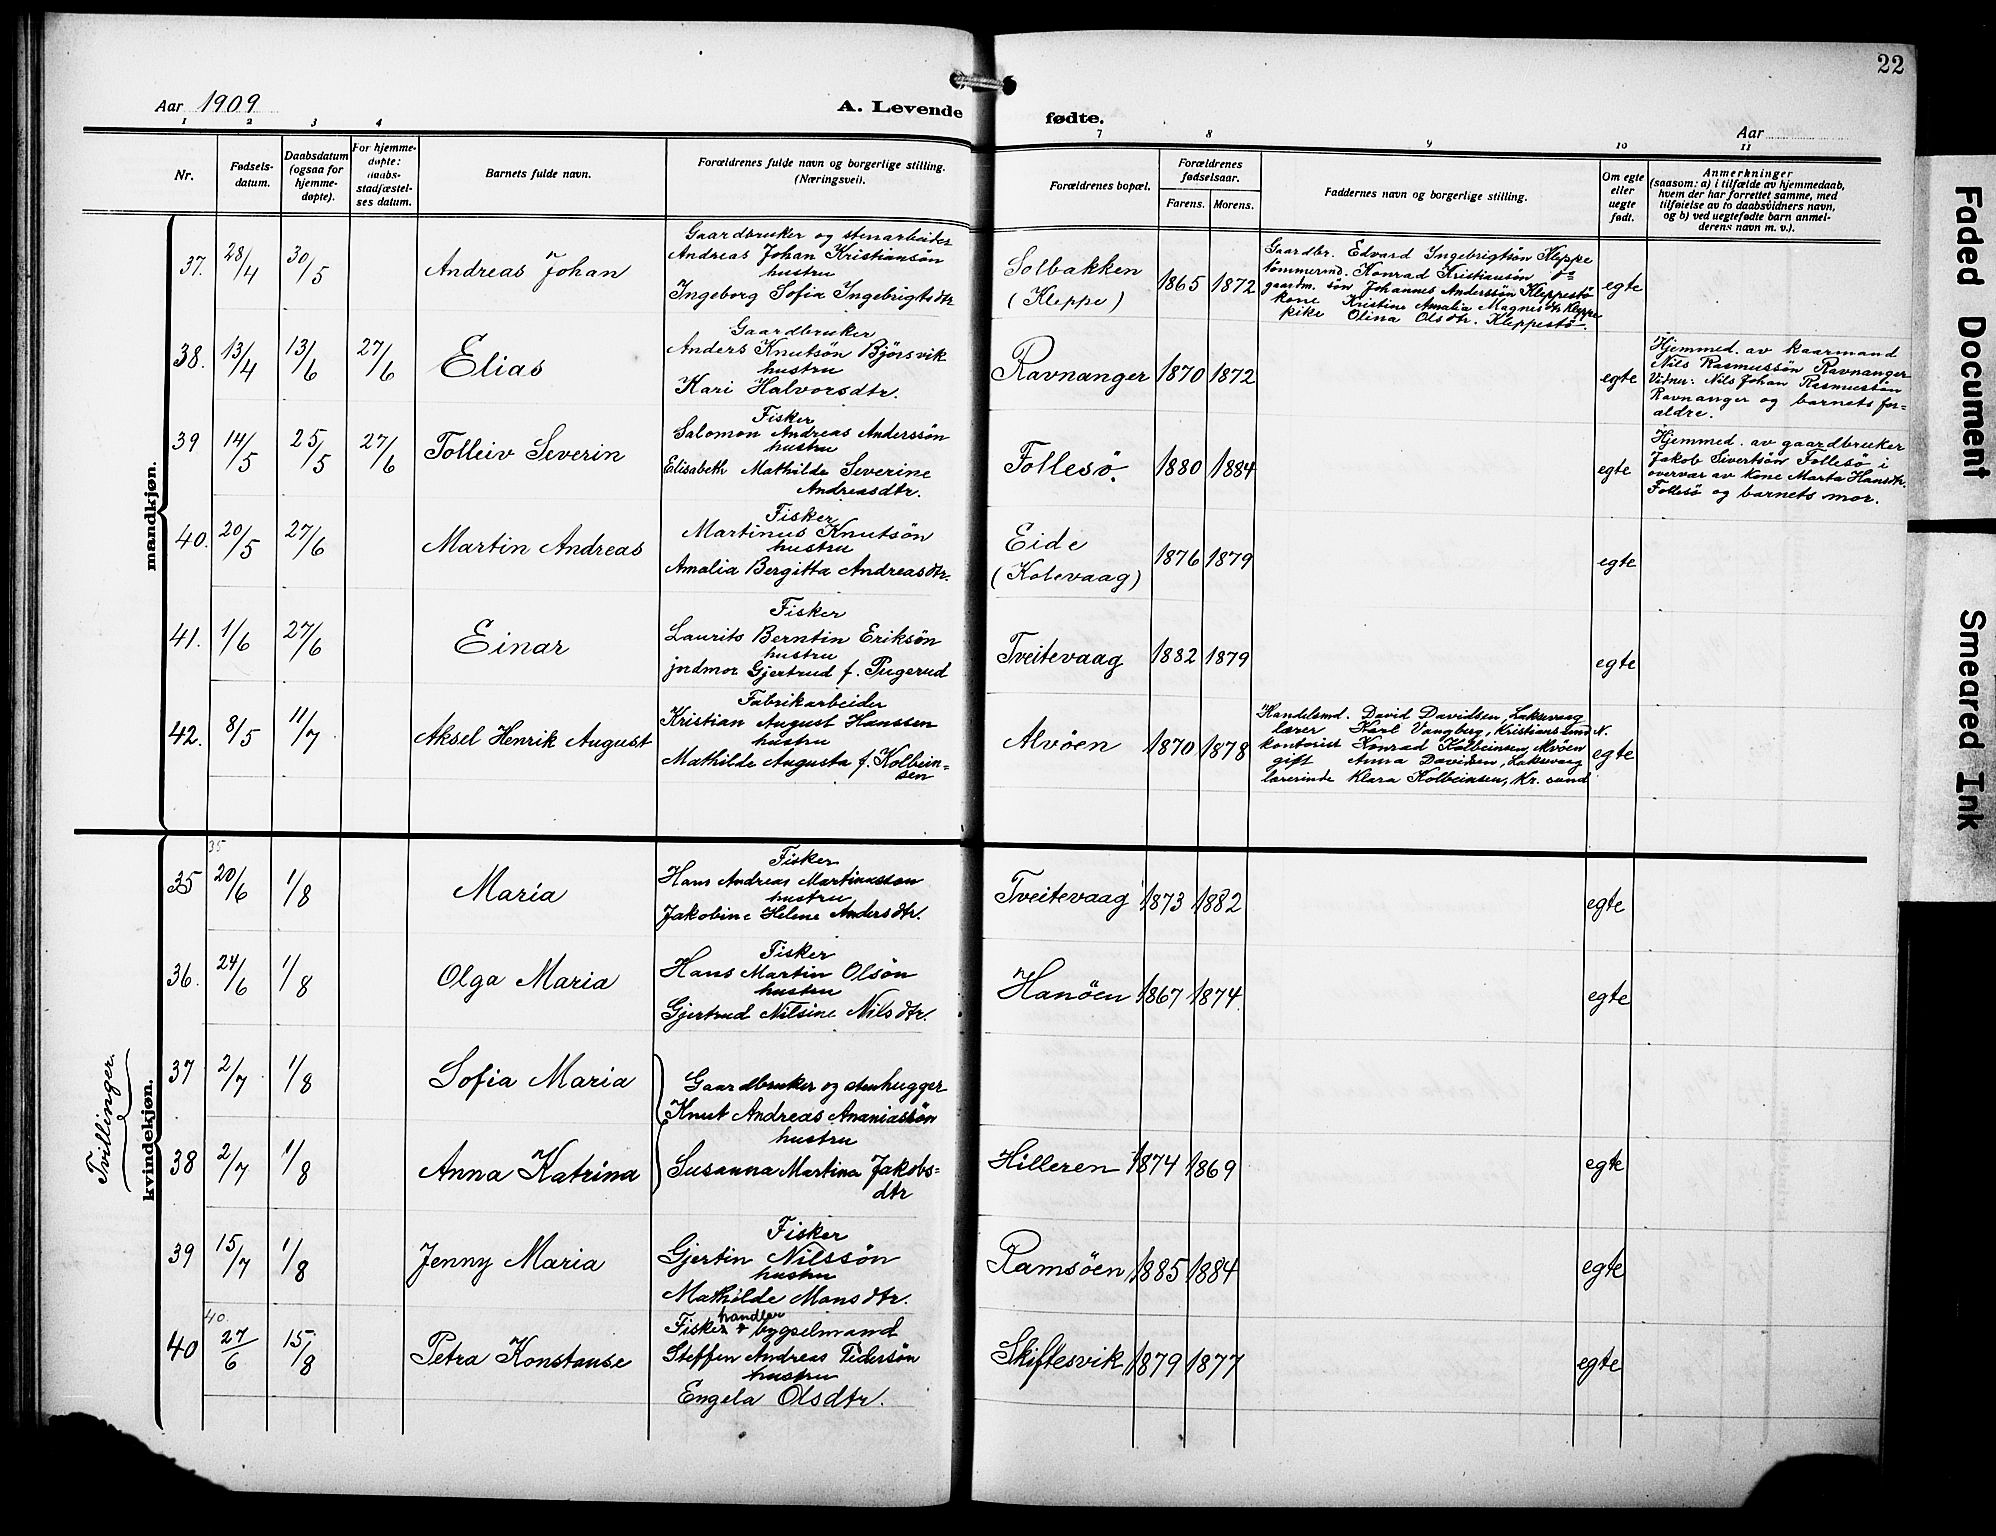 22
Aar 1909
A. Levende
fødte.
Aar
1 2 3 4
7 8 9 10 11
Nr.
Fødsels-
datum.
Daabsdatum
(ogsaa for
hjemme-
døpte).
For hjemme-
døpte:
daabs-
stadfæstel-
ses datum.
Barnets fulde navn.
Forældrenes fulde navn og borgerlige stilling.
(Næringsvei).
Forældrenes bopæl.
Forældrenes
fødselsaar.
Farens. Morens.
Faddernes navn og borgerlige stilling.
Om egte
eller
uegte
født.
Anmerkninger
(saasom: a) i tilfælde av hjemmedaab,
hvem der har forrettet samme, med
tilføielse av to daabsvidners navn,
og b) ved uegtefødte barn anmel-
derens navn m. v.).
mandkjøn.
37. 28/4 30/5 Andreas Johan
Gaardbruker og stenarbeider
Andreas Johan Kristiansøn
hustru
Ingeborg Sofia Ingebrigtsdtr
Solbakken
(Kleppe)
1865 1872
Gaardbr. Edvard Ingebrigtsøn Kleppe
tømmermd. Konrad Kristiansøn do
gaardm. søn Johannes Anderssøn Kleppestø
kone Kristine Amalia Magnusdtr. Kleppe
pike Olina Olsdtr. Kleppestø
egte
38. 13/4 13/6 27/6 Elias
Gaardbruker
Anders Knutsøn Bjørsvik
hustru
Kari Halvorsdtr.
Ravnanger 1870 1872
egte
Hjemmed. av kaarmand
Nils Rasmussøn Ravnanger
Vidner: Nils Johan Rasmussøn
Ravnanger og barnets for-
ældre.
39 14/5 25/5 27/6 Tolleiv Severin
Fisker
Salomon Andreas Anderssøn
hustru
Elisabeth Mathilde Severine
Andreasdtr.
Follesø. 1880 1884
egte
Hjemmed. av gaardbruker
Jakob Sivertsøn Follesø i
overvær av kone Marta Hansdtr.
Follesø og barnets mor.
40. 20/5 27/6 Martin Andreas
Fisker
Martinus Knutsøn
hustru
Amalia Bergitta Andreasdtr.
Eide
(Kolevaag)
1876 1879
egte
41. 1/6 27/6 Einar
Fisker
Laurits Berntin Eriksøn
hustru
jordmor Gjertrud f. Pugerud
Tveitevaag 1882 1879
egte
42. 8/5 11/7 Aksel Henrik August
Fabrikarbeider
Kristian August Hanssen
hustru
Mathilde Augusta f. Kolbein-
sen
Alvøen 1870 1878
Handelsmd. David Davidsen, Laksevaag
lærer Karl Vangberg, Kristiansund N.
kontorist Konrad Kolbeinsen, Alvøen
gift Anna Davidsen, Laksevaag
lærerinde Klara Kolbeinsen, Kr. sund
egte
kvindekjøn.
35
35 20/6 1/8 Maria
Fisker
Hans Andreas Martinussøn
hustru
Jakobine Helene Andersdtr.
Tveitevaag 1873 1882
egte
36. 24/6 1/8 Olga Maria
Fisker
Hans Martin Olsøn
hustru
Gjertrud Nilsine Nilsdtr.
Hanøen 1867 1874.
egte
Tvillinger.
37 2/7 1/8 Sofia Maria
38 2/7 1/8 Anna Katrina
Gaardbruker og stenhugger
Knut Andreas Ananiassøn
hustru
Susanna Martina Jakobs-
dtr
Hilleren 1874 1869
egte
39 15/7 1/8 Jenny Maria
Fisker
Gjertin Nilssøn
hustru
Mathilde Monsdtr.
Ramsøen 1885 1884
egte
40.
40 27/6 15/8 Petra Konstanse
handler
Fisker & bygselmand
Steffen Andreas Pedersøn
hustru
Engela Olsdtr.
Skiftesvik 1879 1877
egte
Faded Document
Smeared Ink